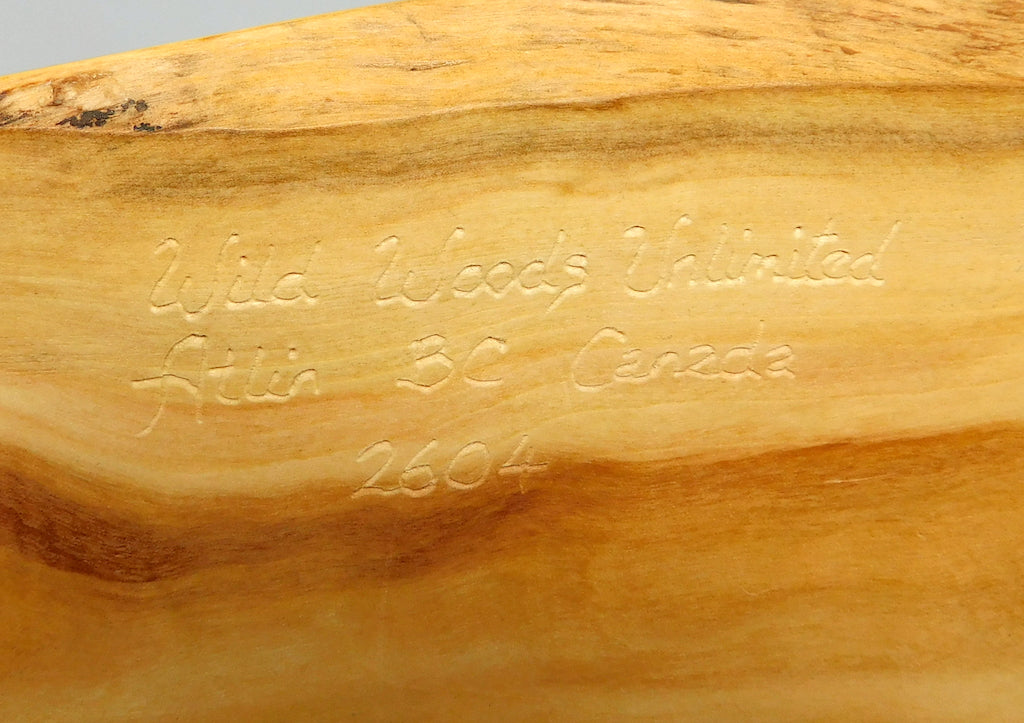 Wild Woods Unlimited
Atlin BC Canada
2604